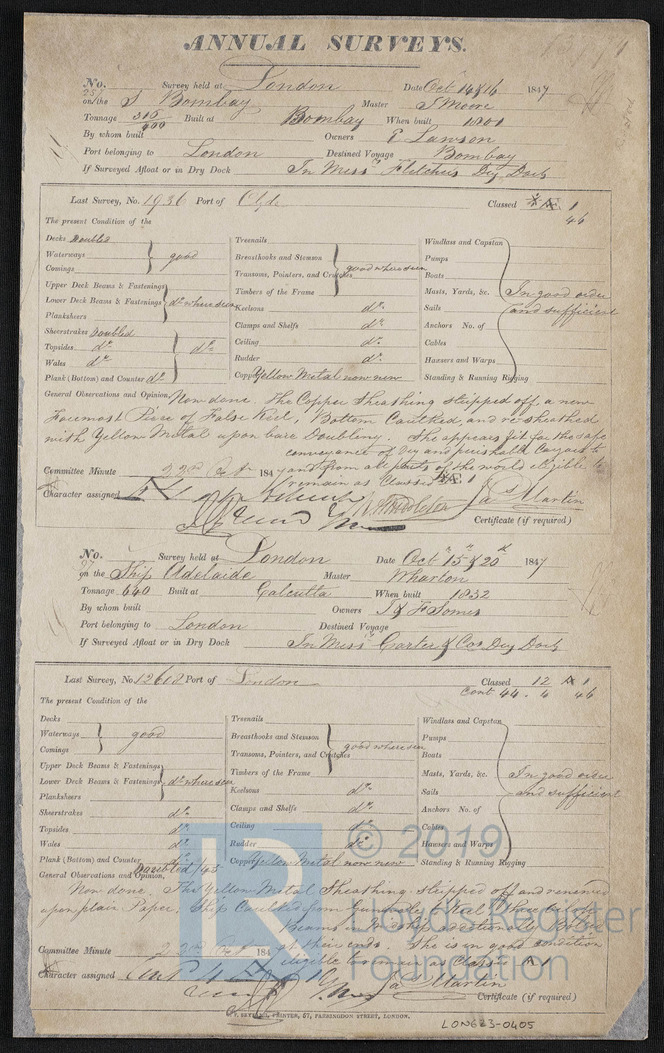 ANNUAL SURVEYS.
No. Survey held at London Date Oct 14 & 16 1847
on the S Bombay Master S Moore
Tonnage 315 400 Built at Bombay When built 1801
By whom built Owners Lawson
Port belonging to London Destined Voyage Bombay
If Surveyed Afloat or in Dry Dock In Mess Fletchers Dry Dock
Last Survey, No. 1936 Port of Clyde Classed 1
46
The present Condition of the
Decks Doubled
Waterways good
Comings
Upper Deck Beams & Fastenings
Lower Deck Beams & Fastenings do where seen
Planksheers
Sheerstrakes Doubled
Topsides do do
Wales do
Plank (Bottom) and Counter do
Treenails
Breasthooks and Stemson
Transoms, Pointers, and Crutches good where seen
Timbers of the Frame
Keelsons do
Clamps and Shelfs do
Ceiling do
Rudder do
Copper Yellow Metal now new
Windlass and Capstan
Pumps
Boats
Masts, Yards, &c. In good order
Sails and sufficient
Anchors No. of
Cables
Hawsers and Warps
Standing & Running Rigging
General Observations and Opinion, Now done. The Copper Sheathing stripped off a new
Foremost Piece of False Keel, Bottom Caulked, and re-sheathed
with Yellow Metal upon bare Doubling. She appears fit for the safe
conveyance of Dry and perishable Cargoes to
Committee Minute 22nd Oct 184 and from all parts of the world eligible to
remain as Classed
Character assigned Jas Martin
Certificate (if required)
No. Survey held at London Date Oct 15 & 20 1847
on the Ship Adelaide Master Wharton
Tonnage 640 Built at Calcutta When built 1832
By whom built Owners T & F Somes
Port belonging to London Destined Voyage
If Surveyed Afloat or in Dry Dock In Mess Carter & Cos Dry Dock
Last Survey, No. 12618 Port of London Classed 12 A 1
Cont 44. 4 46
The present Condition of the
Decks
Waterways good
Comings
Upper Deck Beams & Fastenings
Lower Deck Beams & Fastenings do where seen
Planksheers
Sheerstrakes do
Topsides do
Wales do
Plank (Bottom) and Counter do
Doubled /45
Treenails
Breasthooks and Stemson
Transoms, Pointers, and Crutches good where seen
Timbers of the Frame
Keelsons do
Clamps and Shelfs do
Ceiling do
Rudder do
Copper Yellow Metal now new
Windlass and Capstan
Pumps
Boats
Masts, Yards, &c. In good order
Sails and sufficient
Anchors No. of
Cables
Hawsers and Warps
Standing & Running Rigging
General Observations and Opinion,
Now done. The Yellow Metal Sheathing stripped off and renewed
upon plain Paper, Ship Caulked from Gunwale to Keel
Beams
Committee Minute 22nd Oct 184 at their ends. She is in good condition
eligible to remain as Classed A 1
Character assigned Jas Martin
Certificate (if required)
PRINTER, 67, FARRINGDON STREET, LONDON.
LON623-0405
© 2019
Lloyd's Register
Foundation